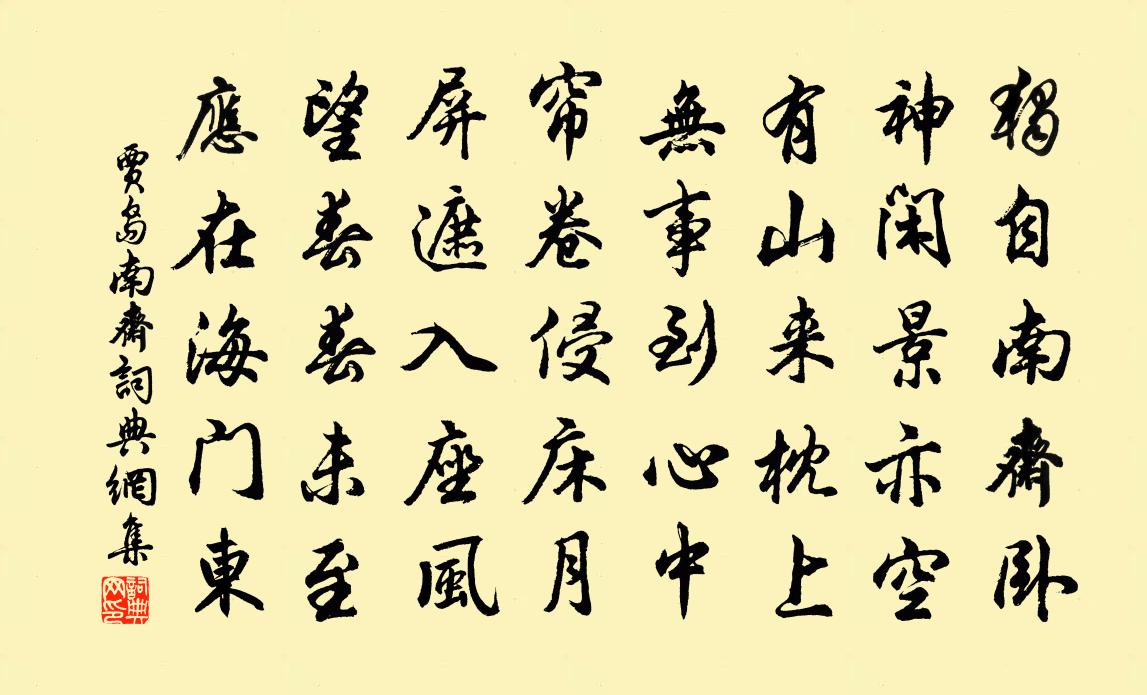 獨自南齋卧
神闲景亦空
有山来枕上
無事到心中
帘卷侵床月
屏遮入座風
望春春未至
應在海门東
賈島南齋詞典網集
詞典网印